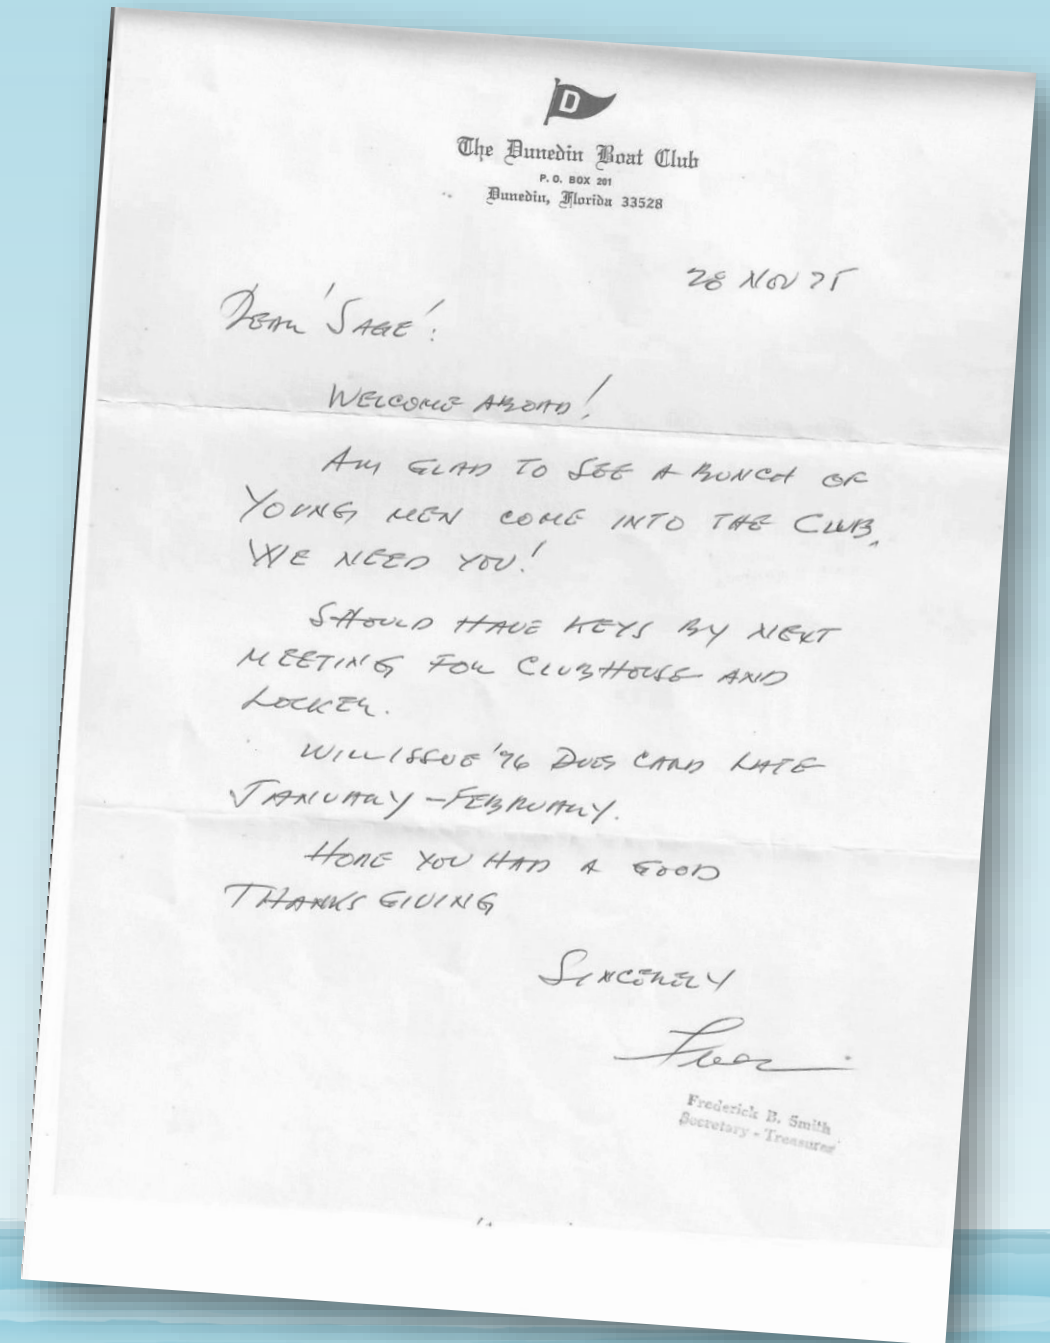 D
The Dunedin Boat Club
P. O. BOX 201
Dunedin, Florida 33528
28 NOV 75
DEAR 'SAGE'!
WELCOME ABOARD!
AM GLAD TO SEE A BUNCH OF
YOUNG MEN COME INTO THE CLUB.
WE NEED YOU!
SHOULD HAVE KEYS BY NEXT
MEETING FOR CLUBHOUSE AND
LOCKER.
WILL ISSUE '76 DUES CARD LATE
JANUARY - FEBRUARY.
HOPE YOU HAD A GOOD
THANKS GIVING
SINCERELY
Fred
Frederick B. Smith
Secretary - Treasurer